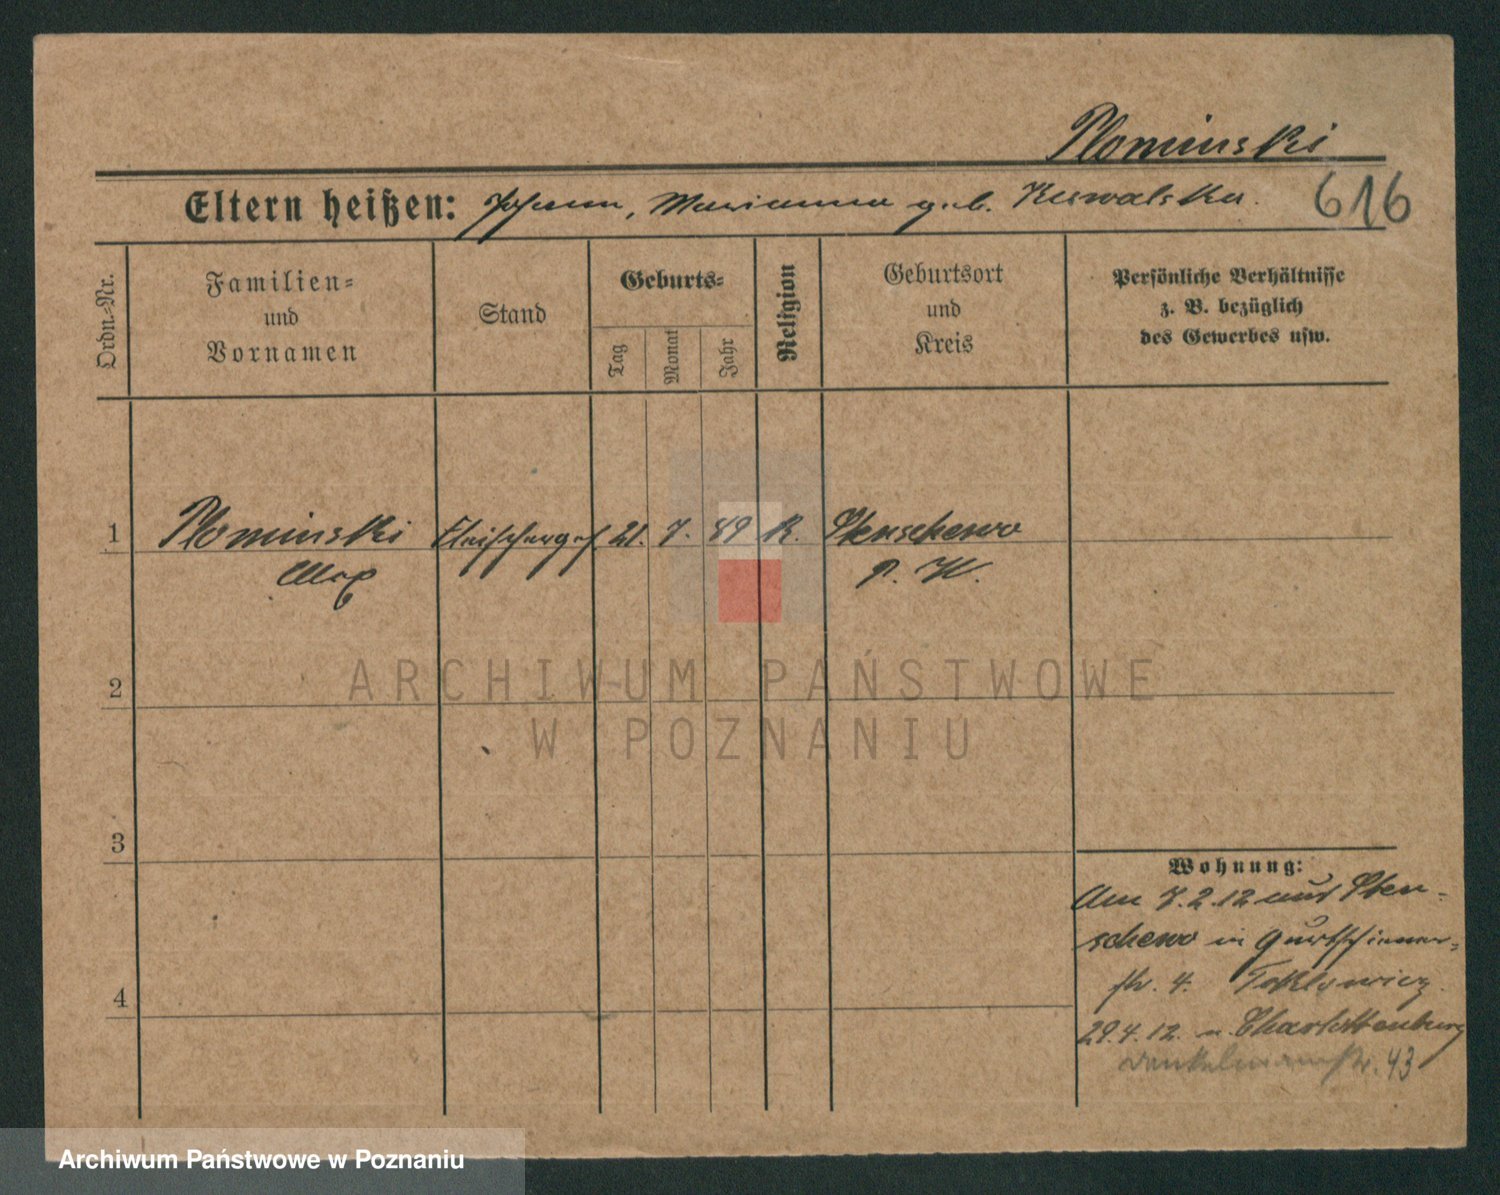 Plominski
Eltern heißen: Johann, Marianna geb. Kuwalska.
616
Ordn.=Nr.
Familien=
und
Vornamen
Stand
Geburts=
Tag
Monat
Jahr
Religion
Geburtsort
und
Kreis
Persönliche Verhältnisse
z. B. bezüglich
des Gewerbes usw.
1
Plominski
Max
Fleischerges.
21. 7. 89
K.
Stenschewo
P. W.
2
3
4
Wohnung:
Am 7.2.12 aus Sten=
schewo in
str. 4.
29.4.12. n. Charlottenburg
Danckelmannstr. 43
ARCHIWUM PAŃSTWOWE
W POZNANIU
Archiwum Państwowe w Poznaniu